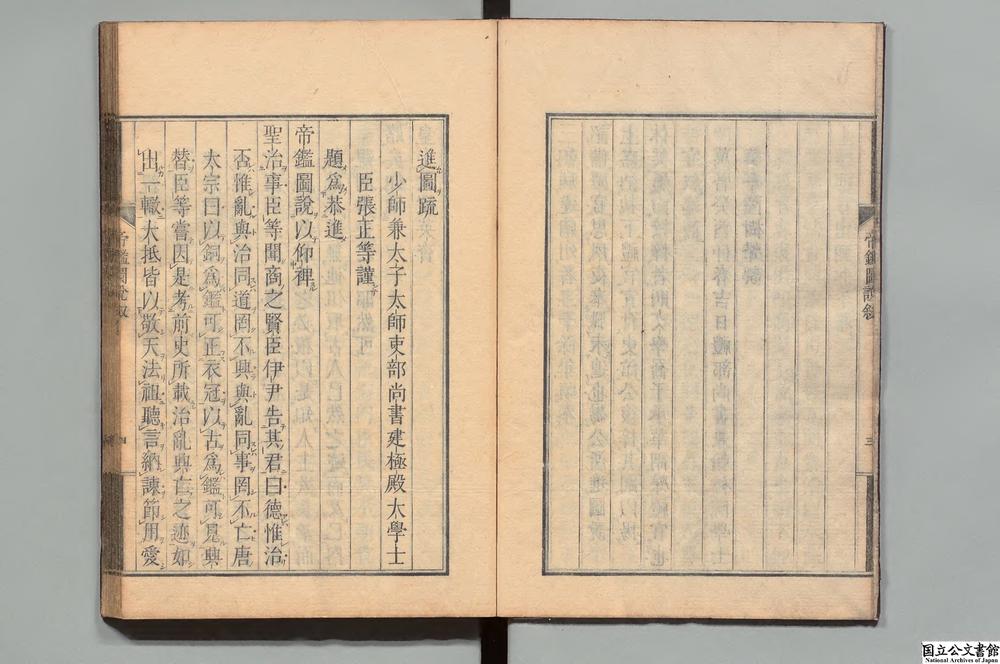 帝鑑圖說敍
三
進圖疏
少師兼太子太師吏部尚書建極殿大學士
臣張正等謹
題爲恭進
帝鑑圖說以仰裨
聖治事臣等聞商之賢臣伊尹告其君曰德惟治
否惟亂與治同道罔不興與亂同事罔不亡唐
太宗曰以銅爲鑑可正衣冠以古爲鑑可見興
替臣等嘗因是考前史所載治亂興亡之迹如
出一轍大抵皆以敬天法祖聽言納諫節用愛
帝鑑圖說敍
四
国立公文書館
National Archives of Japan